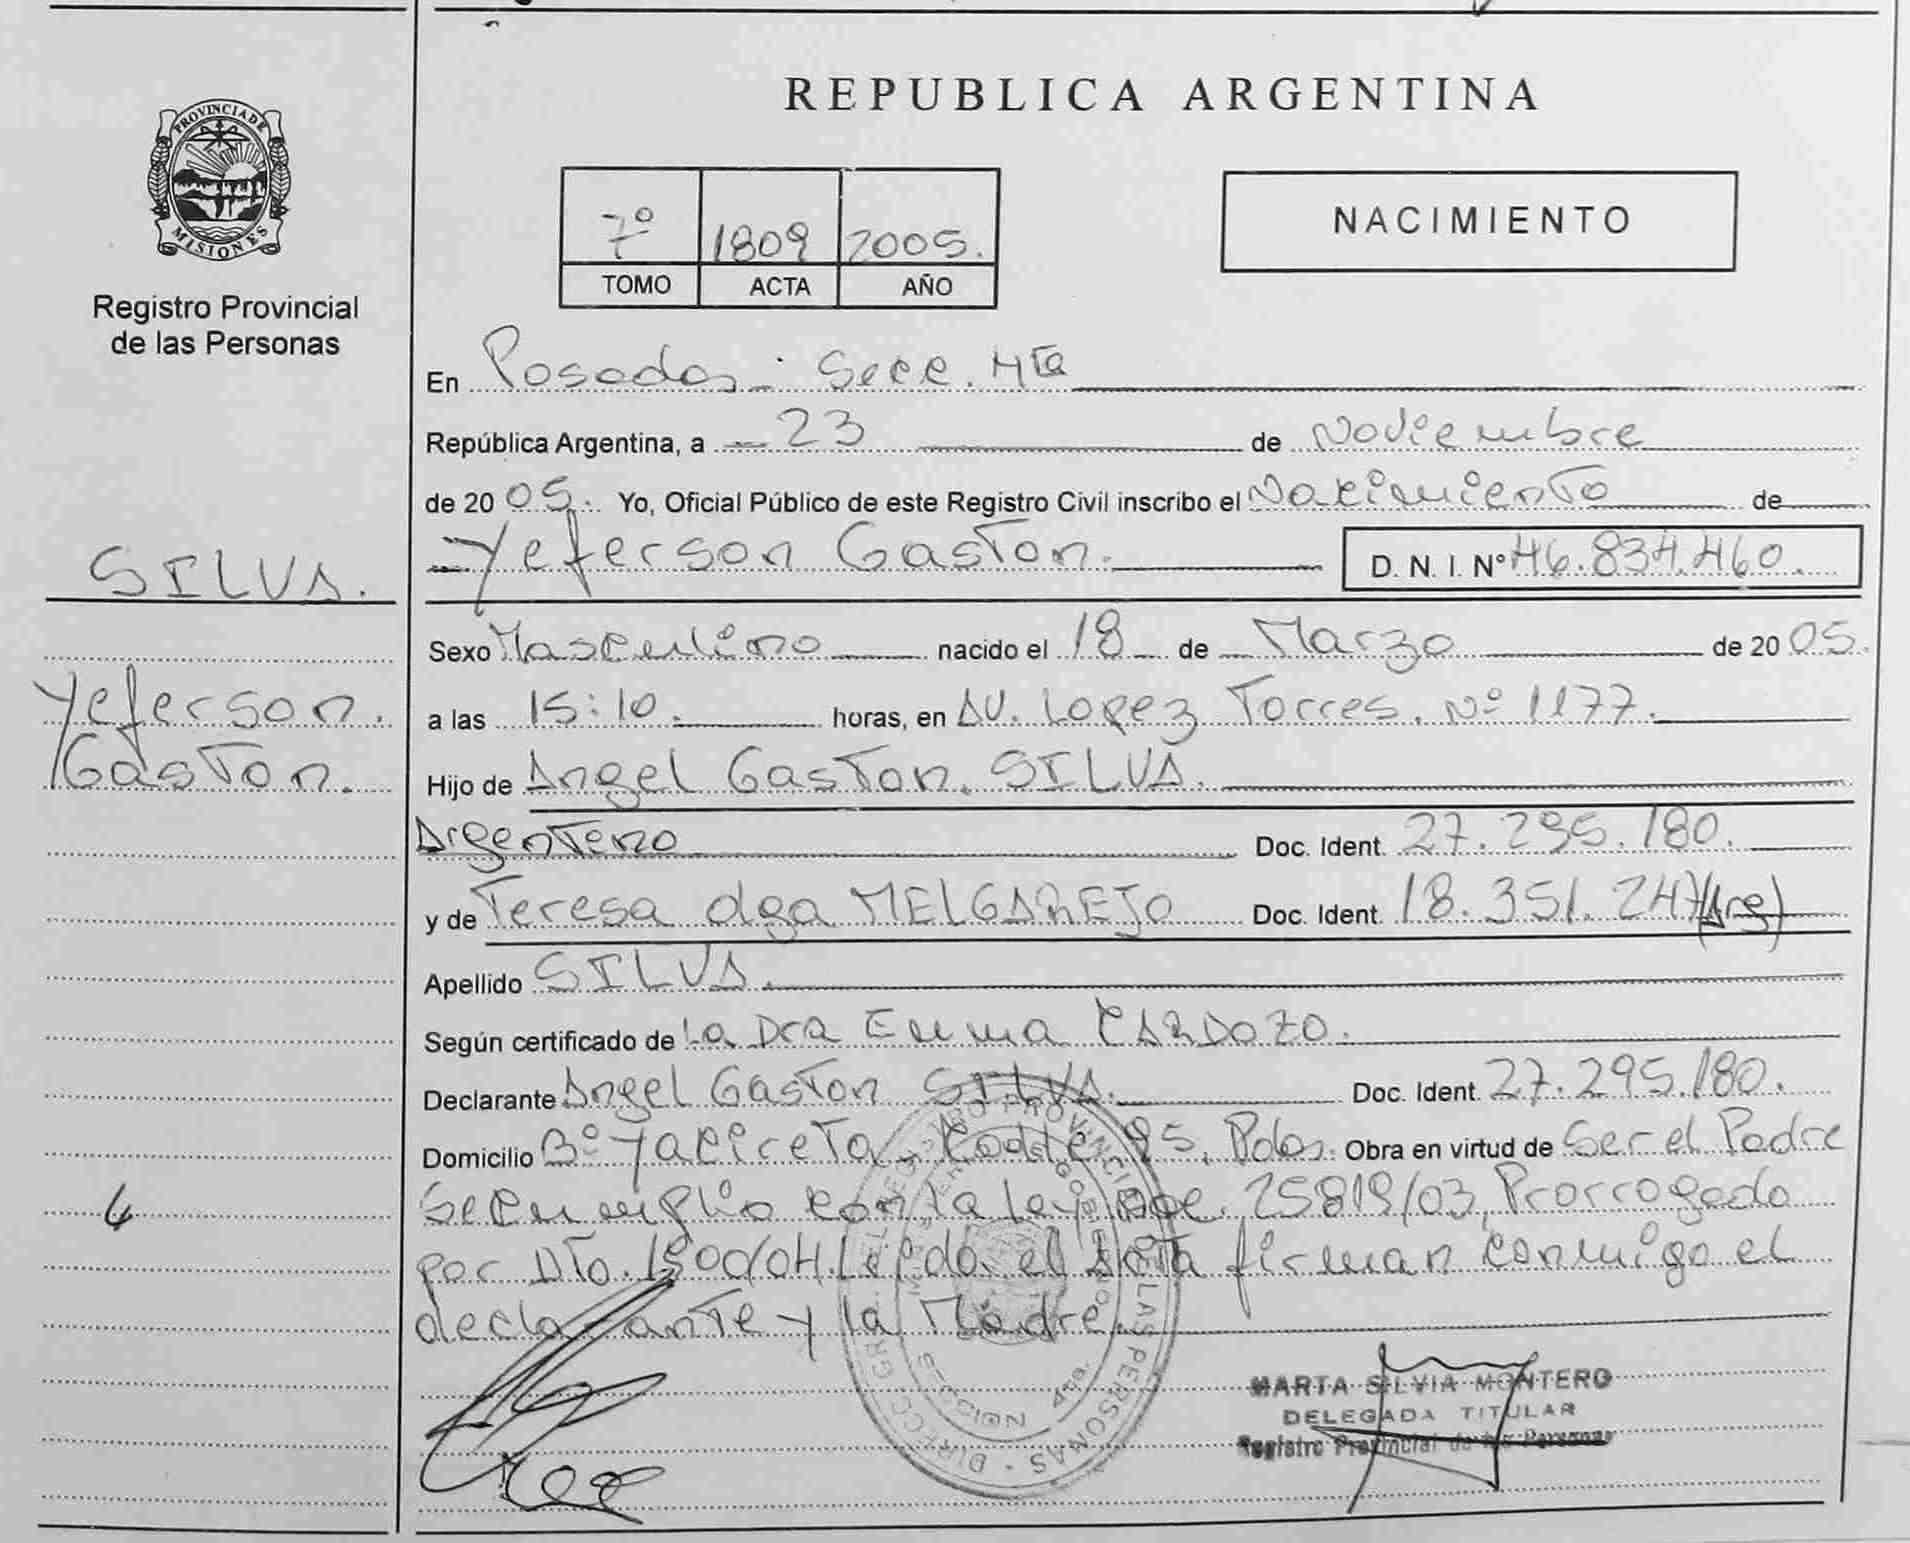 PROVINCIA DE
MISIONES
Registro Provincial
de las Personas
REPUBLICA ARGENTINA
7º 1809 2005.
TOMO ACTA AÑO
NACIMIENTO
En Posadas - Secc. 4ta
República Argentina, a 23 de Noviembre
de 2005. Yo, Oficial Público de este Registro Civil inscribo el Nacimiento de
SILVA.
Yeferson Gaston. D. N. I. Nº 46.834.460.
Sexo Masculino nacido el 18 de Marzo de 2005.
Yeferson.
Gaston.
a las 15:10. horas, en AV. Lopez Torres. Nº 1177.
Hijo de Angel Gaston. SILVA.
Argenteno Doc. Ident. 27.295.180.
y de Teresa olga MELGAREJO Doc. Ident. 18.351.247 (Arg)
Apellido SILVA.
Según certificado de La Dra Emma CARDOZO.
Declarante Angel Gaston SILVA. Doc. Ident. 27.295.180.
Domicilio Bº Yacireta, 95, Pdas. Obra en virtud de Ser el Padre
Se cumplio con la ley Nac. 25819/03, Prorrogado
por Dto. 1500/04. Leido el Acta firman conmigo el
declarante y la Madre.
MARTA SILVIA MONTERO
DELEGADA TITULAR
Registro Provincial de las Personas